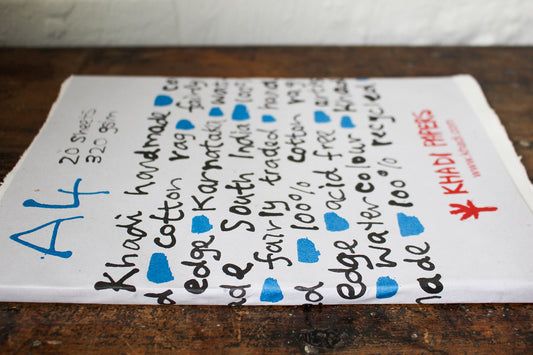 A4
20 sheets
320 gsm
Khadi handmade co
d cotton rag fairly
edge Karnataka wat
ad& South India 100
fairly traded hand
d 100% cotton rag
edge acid free
water colour Khadi
made 100% recycled
KHADI PAPERS
www.khadi.com